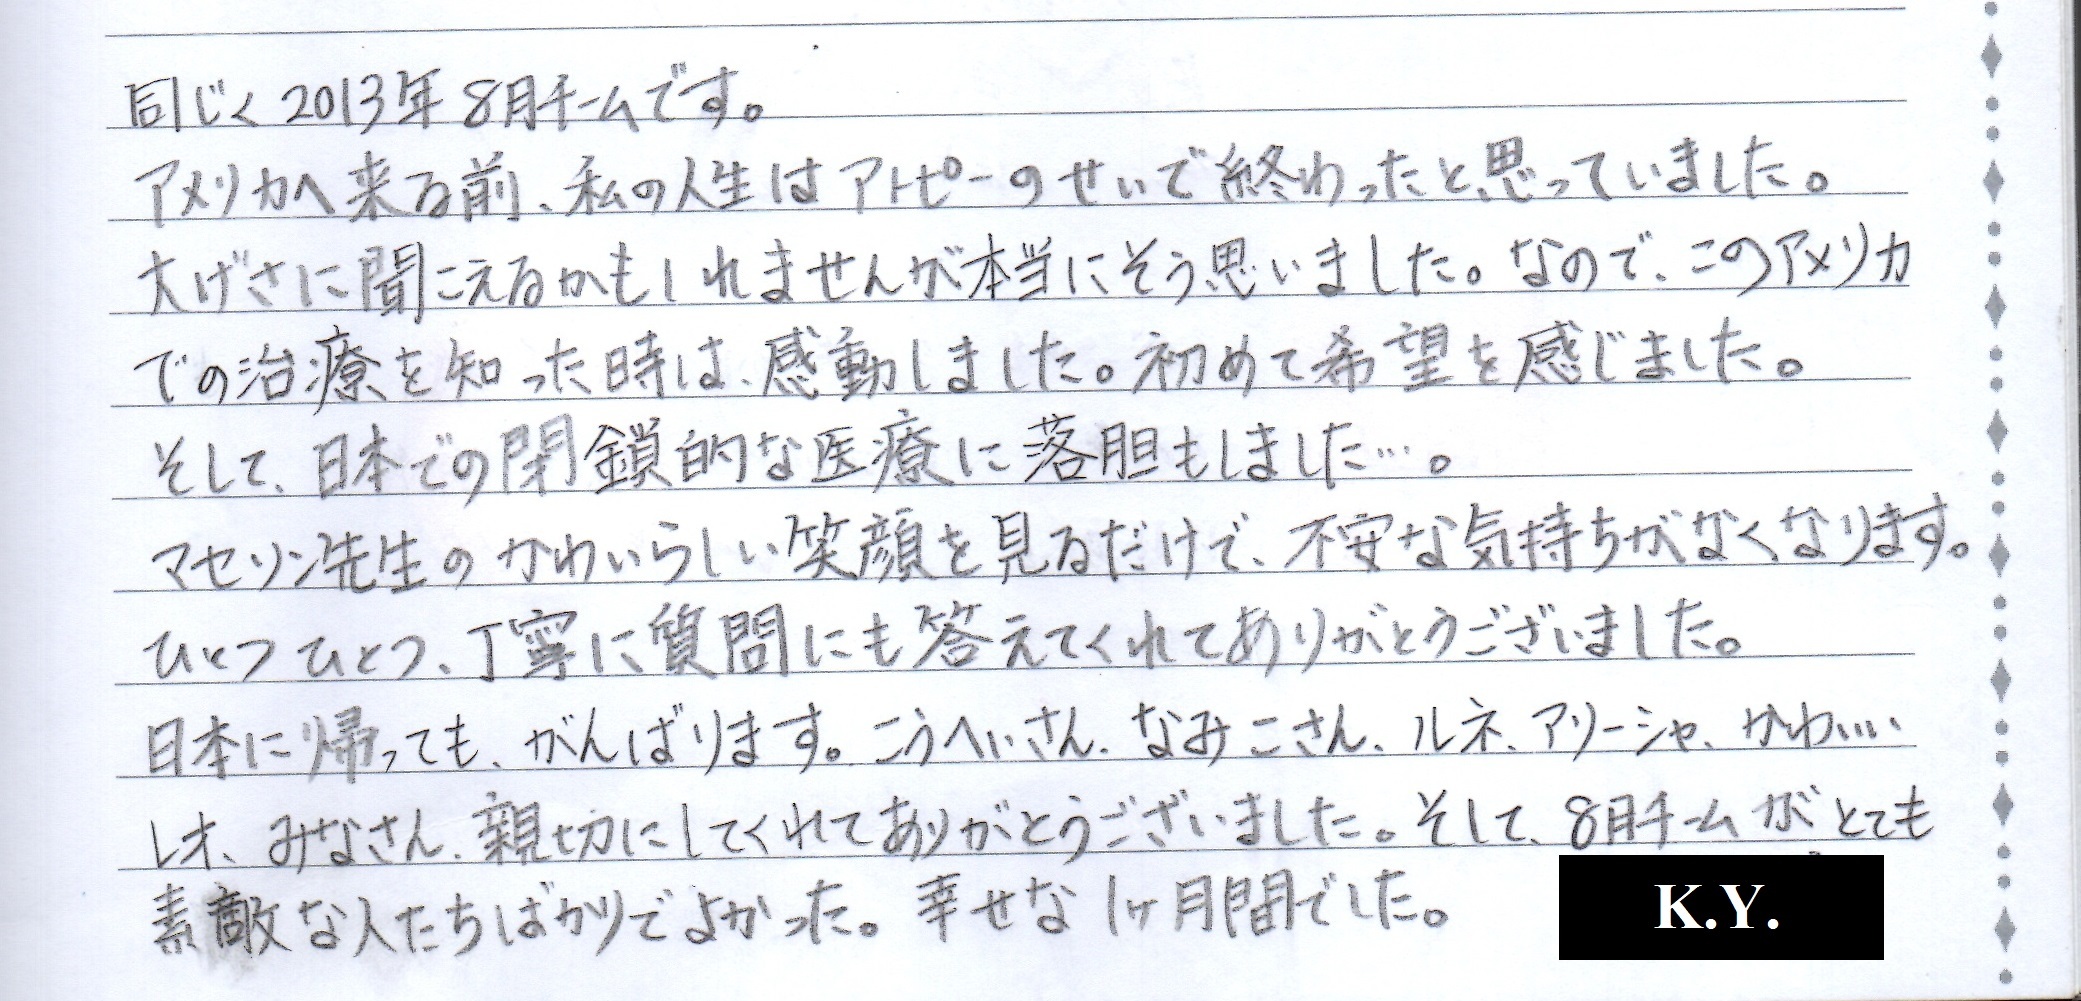 同じく2013年8月チームです。
アメリカへ来る前、私の人生はアトピーのせいで終わったと思っていました。
大げさに聞こえるかもしれませんが本当にそう思いました。なので、このアメリカ
での治療を知った時は、感動しました。初めて希望を感じました。
そして、日本での閉鎖的な医療に落胆もしました…。
マセソン先生のかわいらしい笑顔を見るだけで、不安な気持ちがなくなります。
ひとつひとつ、丁寧に質問にも答えてくれてありがとうございました。
日本に帰っても、がんばります。こうへいさん、なみこさん、ルネ、アリーシャ、かわいい
レオ、みなさん、親切にしてくれてありがとうございました。そして、8月チームがとても
素敵な人たちばかりでよかった。幸せな1ヶ月間でした。
K.Y.